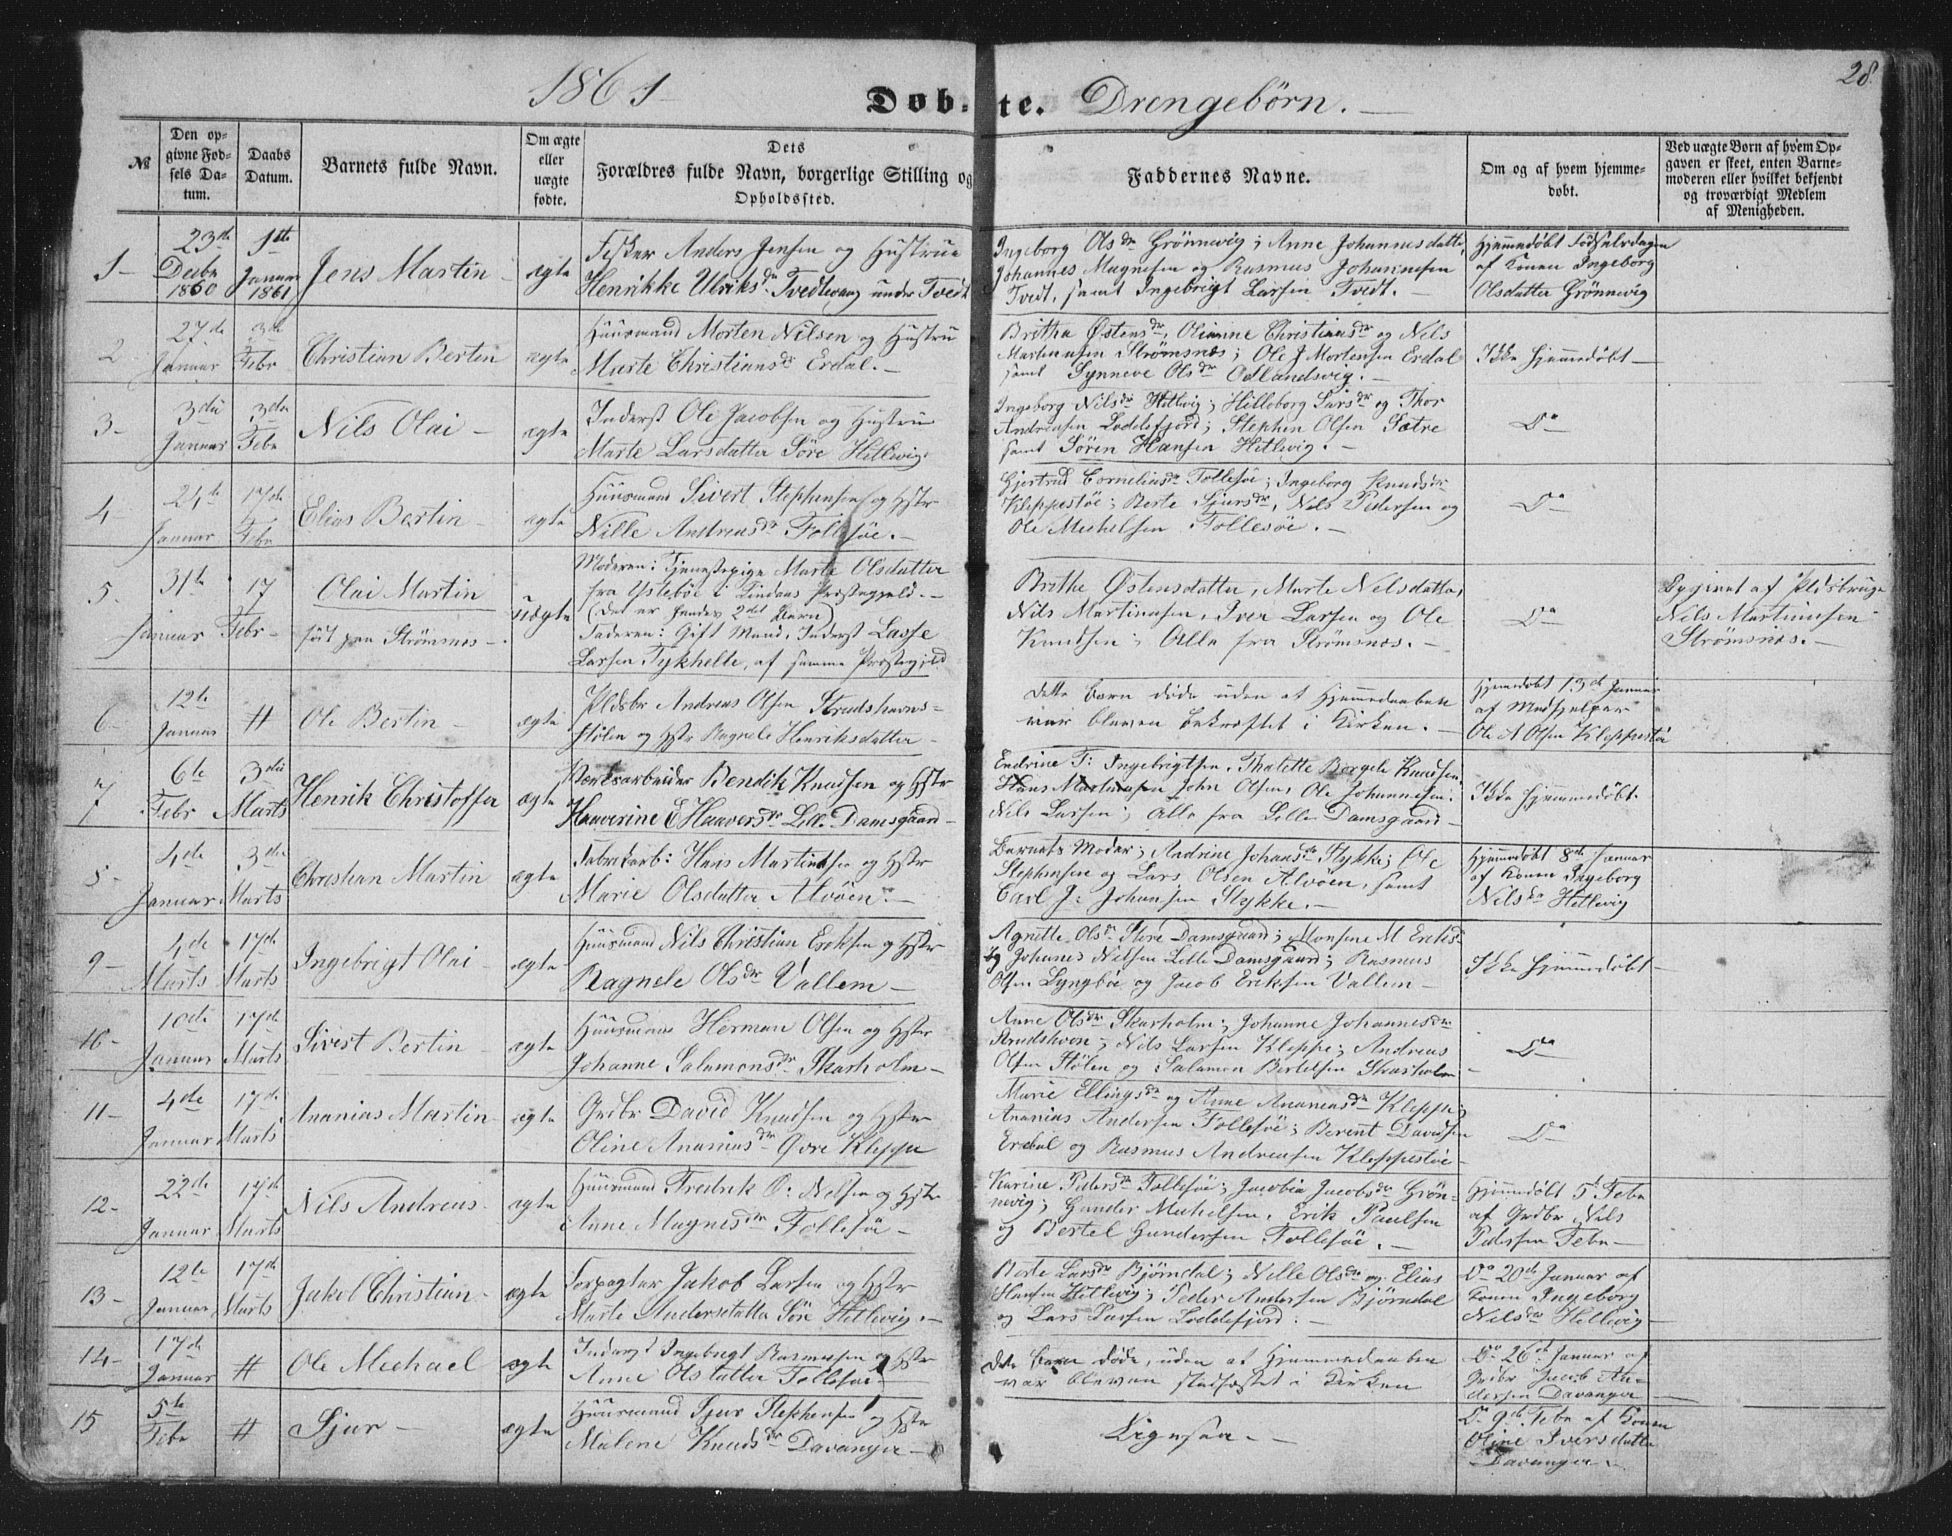 1861
Døbte. Drengebørn.
28.
№
Den opgivne Fødsels Datum.
Daabs Datum.
Barnets fulde Navn.
Om ægte eller uægte fødte.
Dets Forældres fulde Navn, borgerlige Stilling og Opholdssted.
Faddernes Navne.
Om og af hvem hjemmedøbt.
Ved uægte Børn af hvem Opgaven er skeet, enten Barnemoderen eller hvilket bekjendt og troværdigt Medlem af Menigheden.
1-
23de Decbr 1860
1ste Januar 1861
Jens Martin
ægte
Fisker Anders Jensen og Hustrue
Henrikke Ulriksdr Tvedtevaag under Tvedt
Ingeborg Olsdr Grønnevig; Anne Johannesdatter,
Johannes Magnesen og Rasmus Johannesen
Tvedt, samt Ingebrigt Larsen Tvedt.
Hjemmedøbt Fødselsdagen
af Konen Ingeborg
Olsdatter Grønnevig
2
27de Januar
3de Febr
Christian Bertin
ægte
Huusmand Morten Nilsen og Hustru
Marte Christiansdr Erdal.
Britha Østensdr, Olianne Christiansdr og Nils
Martinusen Strømsnæs; Ole J Mortensen Erdal
samt Synneve Olsdr Odlandsvig.
Ikke Hjemmedøbt
3-
3die Januar
3de Febr
Nils Olai
ægte
Inderst Ole Jacobsen og Hustrue
Marte Larsdatter Søre Hetlevig.
Ingeborg Nilsdr Hetlevig; Hilleborg Larsdr og Thor
Andreasen Loddefjord; Stephen Olsen Sætre
samt Søren Hansen Hetlevig.
Do
4-
24de Januar
17de Febr
Elias Bertin
ægte
Huusmand Sivert Stephensen og Hstr
Nille Andreasdr Follesøe.
Gjertrud Corneliusdr Follesøe; Ingeborg Knudsdr
Kleppestøe; Berte Sjursdr, Nils Pedersen og
Ole Michelsen Follesøe.
Do
5-
31te Januar
17 Febr
Olai Martin
født paa Strømsnes
uægte
Moderen: Tjenestepige Marte Olsdatter
fra Ystebøe i Lindaas Præstegjeld.
(Det er hendes 2det Barn)
Faderen: Gift Mand, Inderst Lasse
Larsen Tykhelle, af samme Præstegjeld
Brithe Østensdatter, Marte Nelsdatter,
Nils Martinusen, Iver Larsen og Ole
Knudsen; Alle fra Strømsnes.
Do
af Pldsbruger
Nils Martinusen
Strømsnæs.
6-
12te Januar
#
Ole Bertin
ægte
Pldsbr Andreas Olsen Strudshavns-
stølen og Hstr Ragnele Henriksdatter
Dette Barn døde uden at Hjemmedaaben
var bleven bekræftet i Kirken.
Hjemmedøbt 13de Januar
af Medhjelper
Ole N Olsen Kleppestøe
7
6te Febr
3die Marts
Henrik Christoffer
ægte
Værksarbeider Bendik Knudsen og Hstr
Hanverine E Hanversdr Lille Damsgaard
Endrine T: Ingebrigtsen, Thalette Bergele Knudsen,
Hans Martinusen John Olsen, Ole Johannesen.
Nils Larsen; Alle fra Lille Damsgaard
Ikke Hjemmedøbt
8-
4de Januar
3die Marts
Christian Martin
ægte
Fabrikarb: Hans Martinusen og Hstr
Marie Olsdatter Alvøen.
Barnets Moder; Andrine Johansdr Stykke; Ole
Stephensen og Lars Olsen Alvøen, samt
Carl J: Johansen Stykke.
Hjemmedøbt 8de Januar
af Konen Ingeborg
Nilsdr Hetlevig
9-
4de Marts
17de Marts
Ingebrigt Olai
ægte
Huusmand Nils Christian Eriksen og Hstr
Ragnele Olsdr Vallem
Agnette Olsdr Store Damsgaard; Monsine M Eriks-
og Johanes Nilsen Lille Damsgaard; Rasmus
Olsen Lyngbøe og Jacob Eriksen Vallem
Ikke Hjemmedøbt
10-
10de Januar
17de Marts
Sivert Bertin
ægte
Huusmand Herman Olsen og Hstr
Johanne Salamonsdr Skarholm
Anne Olsdr Skarholm; Johanne Johannesdr
Strudshavn; Nils Larsen Kleppe; Andreas
Olsen Stølen og Salamon Bertelsen Skarholm
Do
11-
4de Januar
17de Marts
Ananias Martin
ægte
Grdbr David Knudsen og Hstr
Oline Ananiasdr Øvre Kleppe
Marie Ellingsdr og Anne Ananiasdr Kleppe;
Ananias Andersen Follesøe; Berent Davidsen
Erdal og Rasmus Andreasen Kleppestøe
Do
12-
22de Januar
17de Marts
Nils Andreas
ægte
Huusmand Fredrik O: Nilsen og Hstr
Anne Magnesdr Follesøe
Karine Pedersdr Follesøe; Jacobia Jacobsdr Grøn-
nevig; Gunder Michelsen, Erik Paulsen
og Bertel Gundersen Follesøe.
Hjemmedøbt 5 Febr
af Grdbr Nils
Pedersen Febr
13-
12te Januar
17de Marts
Jakob Christian
ægte
Forpagter Jakob Larsen og Hstr
Marte Andersdatter Søre Hetlevig.
Berte Larsdr Bjørndal; Nille Olsdr og Elias
Hansen Hetlevig; Peder Andersen Bjørndal
og Lars Larsen Loddefjord.
Do 20de Januar af
Konen Ingeborg
Nilsdr Hetlevig
14-
17de Januar
#
Ole Michael
ægte
Inderst Ingebrigt Rasmusen og Hstr
Anne Olsdatter Follesøe
Dette Barn døde, uden at Hjemmedaaben
var bleven stadfæstet i Kirken
Do 26de Januar af
Grdbr Jacob An-
dersen Davanger
15
5te Febr
#
Sjur
ægte
Huusmand Sjur Stephensen og Hstr
Malene Knudsdr Davanger
Ligesaa.
Do 9de Febr af Konen
Oline Iversdatter
Davanger